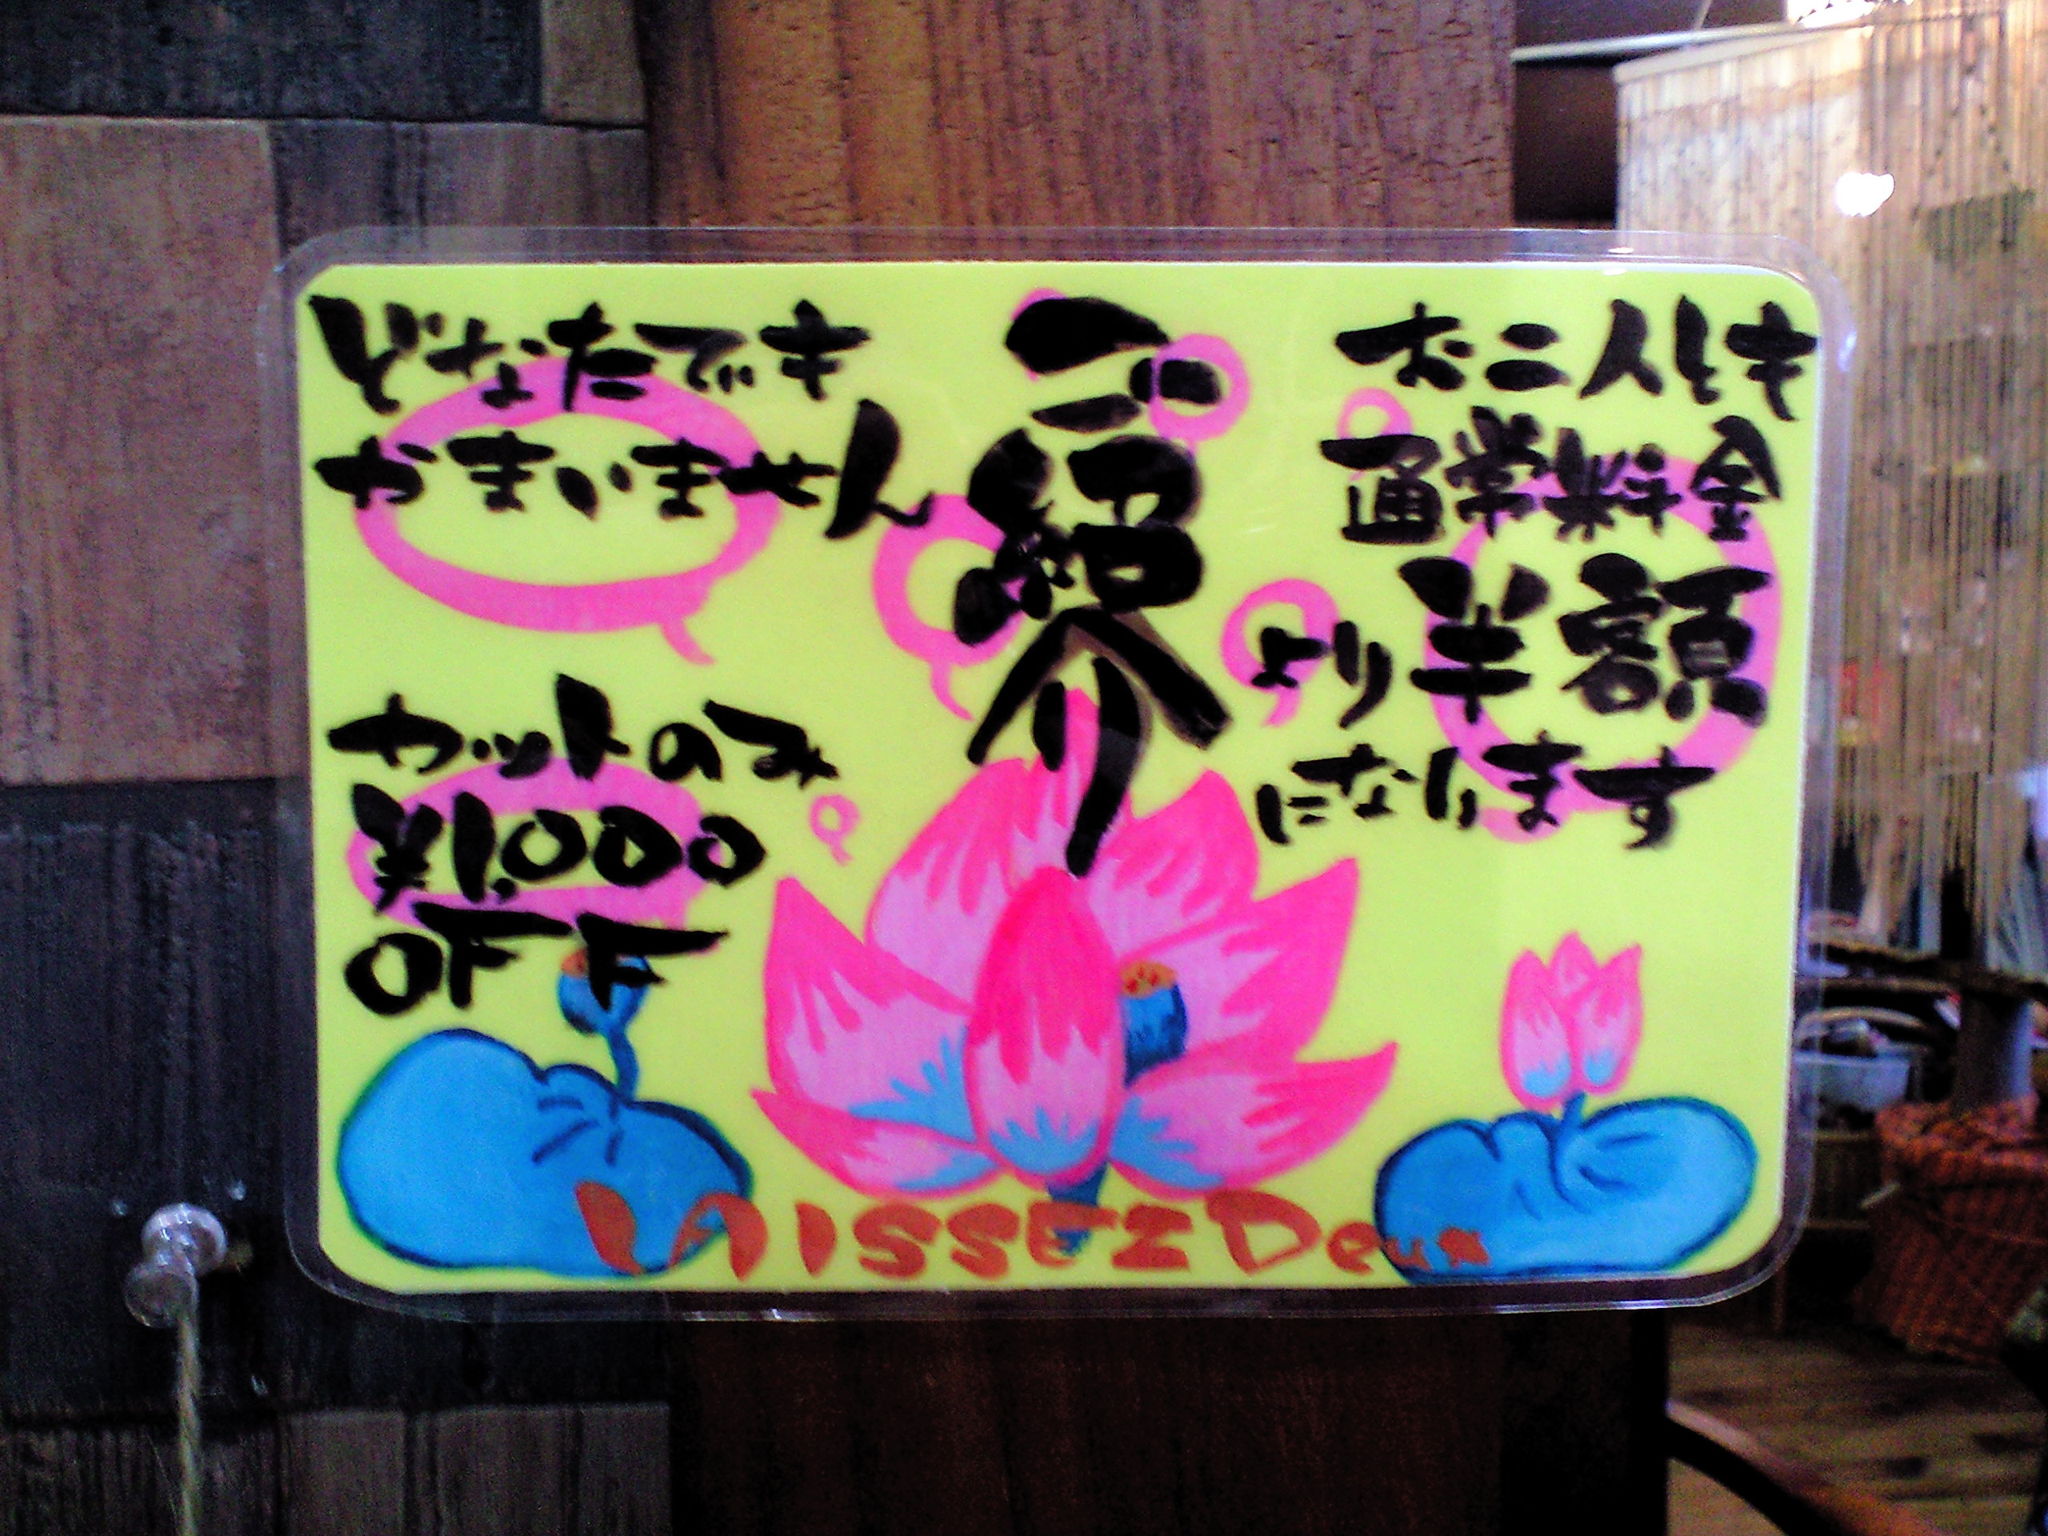 どなたでも
かまいません
ご紹介
お二人とも
通常料金
より半額
になります
カットのみ
¥1,000
OFF
LAISSEZ Deux